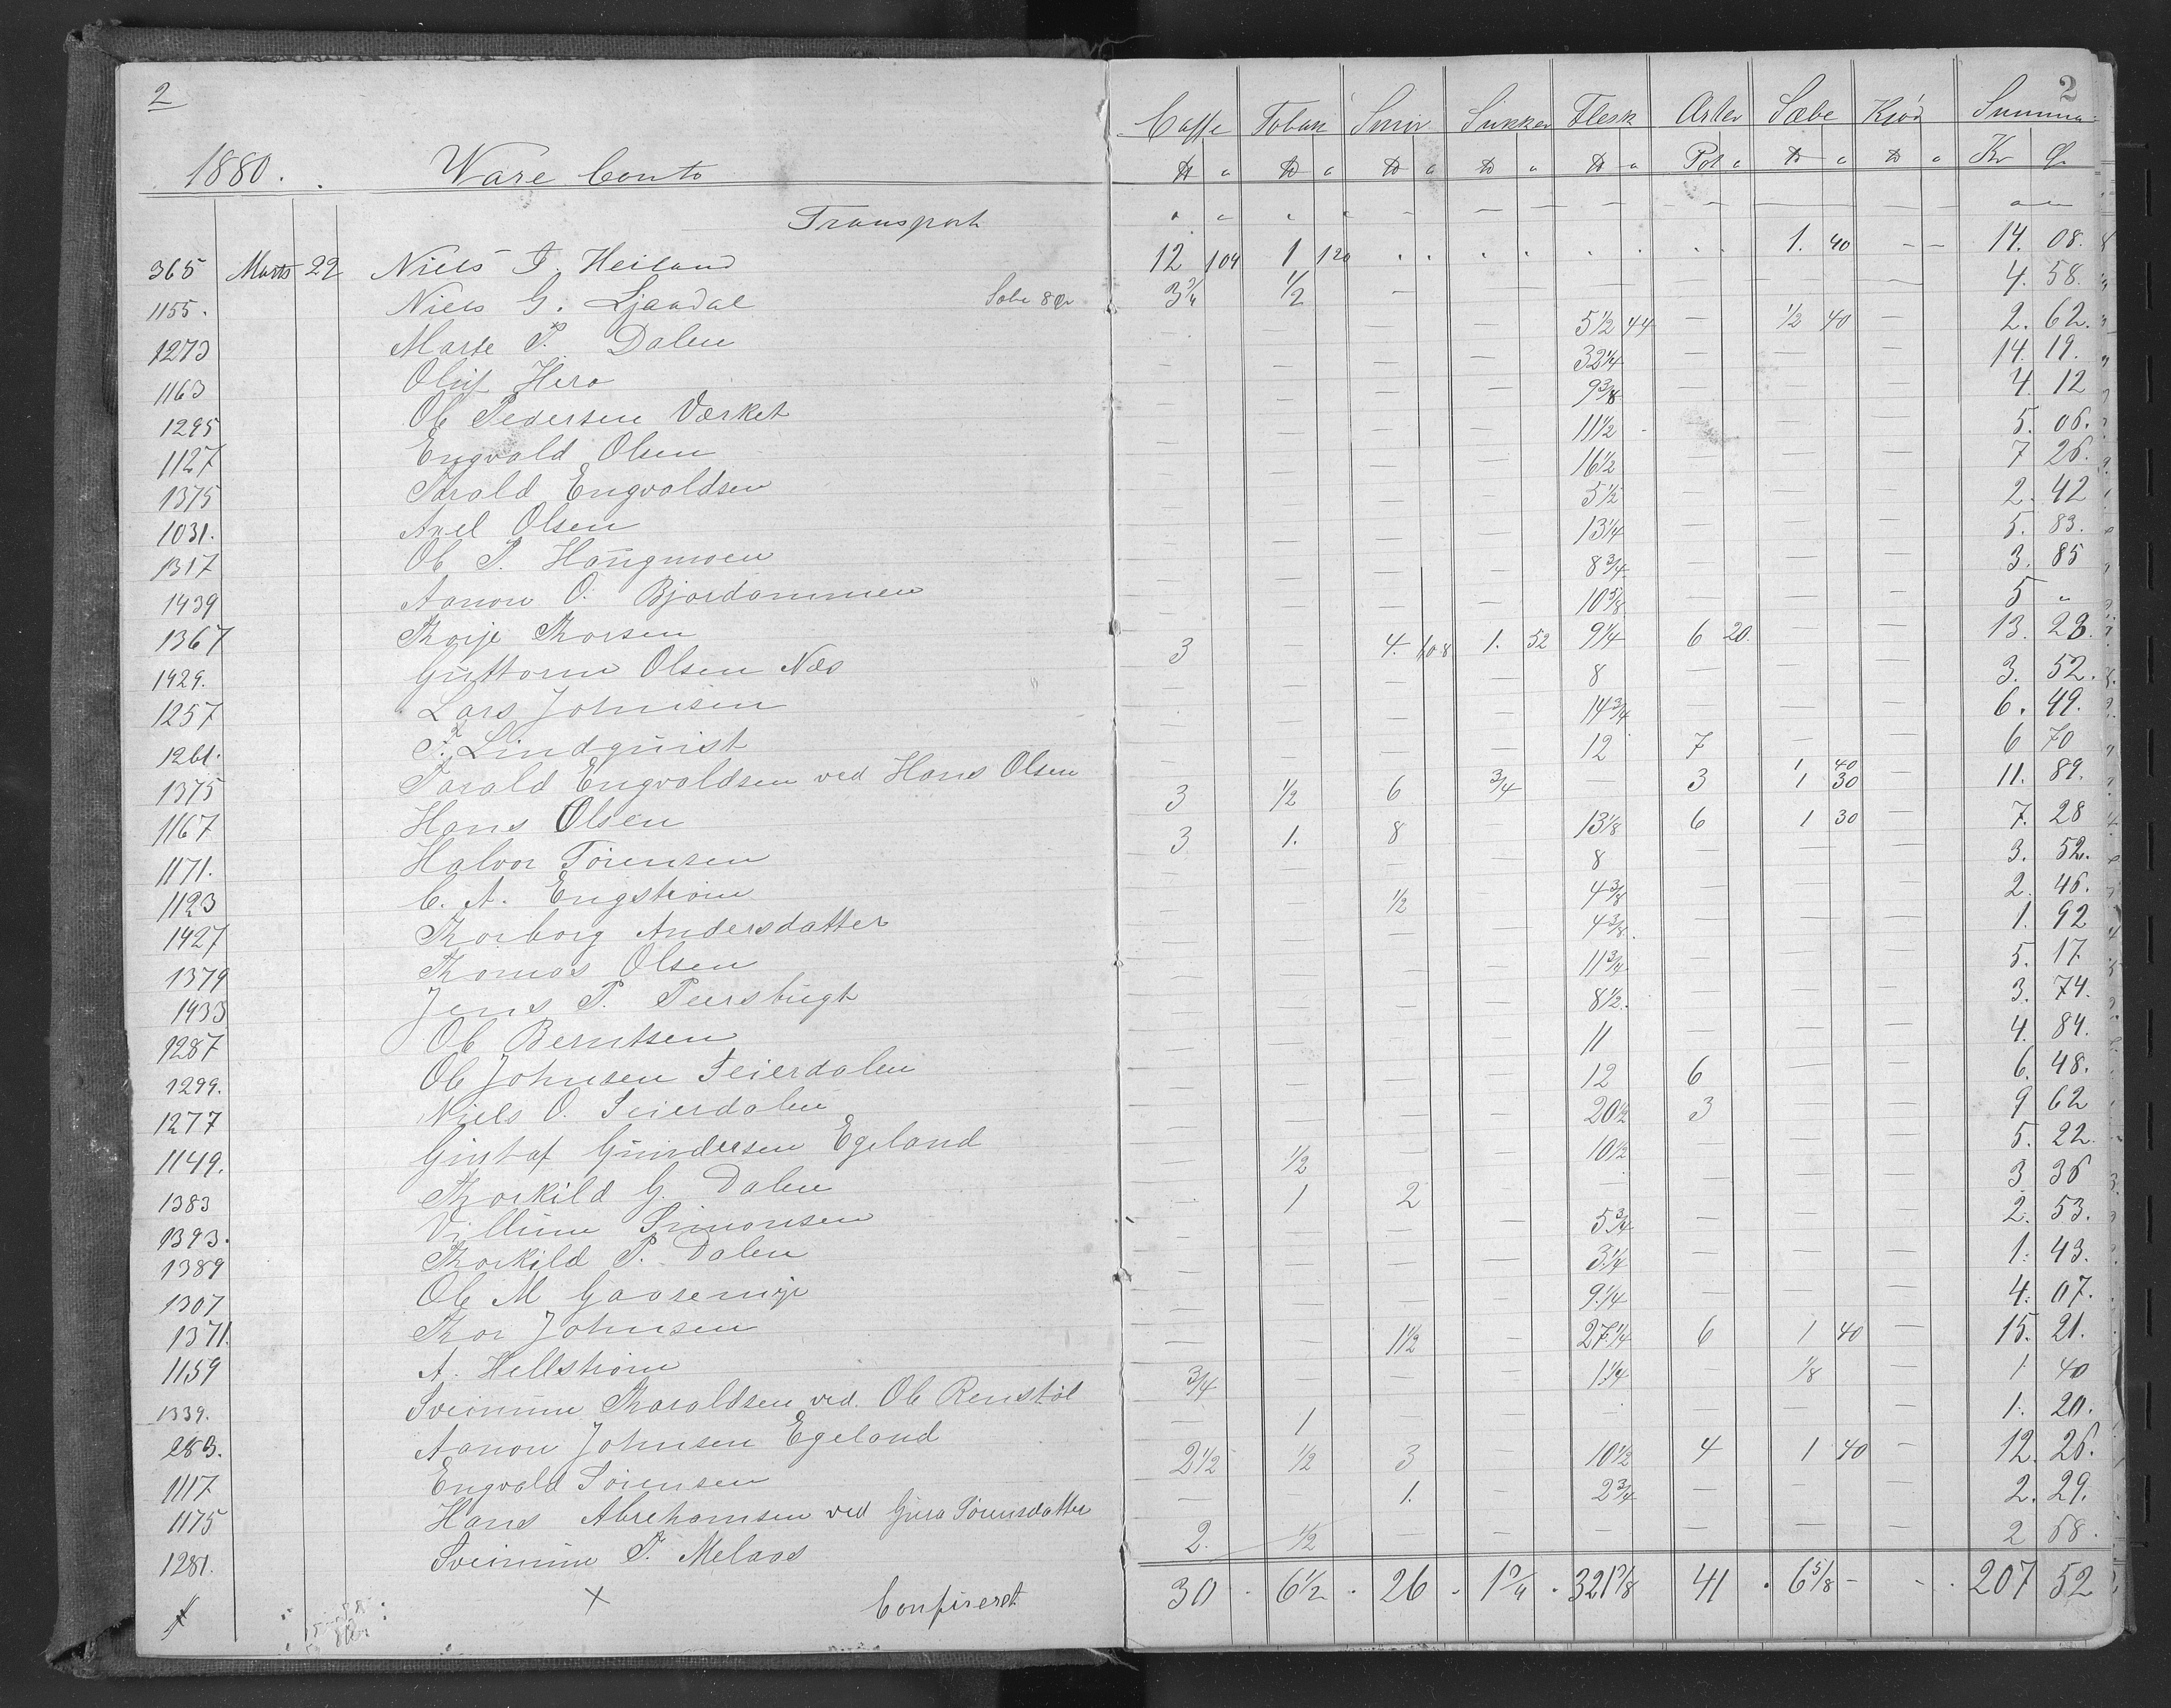 2
2
1880. Ware Conto Caffe Tobak Smør Sukker Flesk Erter Sæbe Kjød Summa
Pot Kr
Transport
365 Marts 22 Niels T. Heiland 12 104 1 120 1. 40 14. 08.
1155. Niels G. Ljaadal Sæbe 8 ør 3 3/4 1/2 4. 58.
1273 Marte P. Dalen 5 1/2 44 1/2 40 2. 62.
1163 Oluf Hera 32 1/4 14. 19.
1295 Ole Pedersen Værket 9 3/8 4. 12
1127 Engvald Olsen 11 1/2 5. 06.
1375 Tarald Engvaldsen 16 1/2 7 26.
1031. Axel Olsen 5 1/2 2. 42
1317 Ole P. Haugmoen 13 1/4 5. 83.
1439 Aanon O. Bjordammen 8 3/4 3. 85
1367 Thorje Thorsen 10 5/8 5 "
1429. Guttorm Olsen Næs 3 4. 108 1. 52 9 1/4 6 20. 13. 23.
1257 Lars Johnsen 8 3. 52.
1261. Lindquist 14 3/4 6. 49.
1375 Tarald Engvaldsen ved Hans Olsen 12 7 6 70
1167 Hans Olsen 3 1/2 6 3/4 3 1 40 1 30 11. 89.
1171. Halvor Törensen 3 1. 8 13 1/8 6 1 30 7. 28
1123 C. A. Engström 8 3. 52.
1427 Thorborg Andersdatter 1/2 4 3/8 2. 46.
1379 Thomas Olsen 4 3/8. 1. 92
1433 Jens P. Peersbugt 11 3/4 5. 17.
1287 Ole Berntsen 8 1/2. 3. 74.
1299. Ole Johnsen Seierdalen 11 4. 84.
1277 Niels O. Seierdalen 12 6 6. 48.
1149. Gustaf Gundersen Egeland 20 1/2 3 9 62
1383 Thorkild G. Dalen 1/2 10 1/2 5. 22.
1393. Villum Simonsen 1 2 3 36
1389 Thorkild P. Dalen 5 3/4 2. 53.
1307 Ole M Gaasemyr 3 1/4 1. 43.
1371. Thor Johnsen 9 1/4 4. 07.
1159 A. Hellström 1 1/2 27 1/4 6 1 40 15. 21.
1339. Sveinum Tharaldsen ved Ole Renstöl 3/4 1 1/4 1/8 1 40
283. Aanon Johnsen Egeland 1 1. 20.
1117 Engvald Sörensen 2 1/2 1/2 3 10 1/2 4 1 40 12. 26.
1175 Hans Abrehamsen ved Gura Törensdatter 1. 2 3/4 2. 29.
1281. Sveinum T. Melaas 2. 1/2 2 68.
× Confereret 30 6 1/2 26 1 3/4 321 7/8 41 6 5/8 207 52